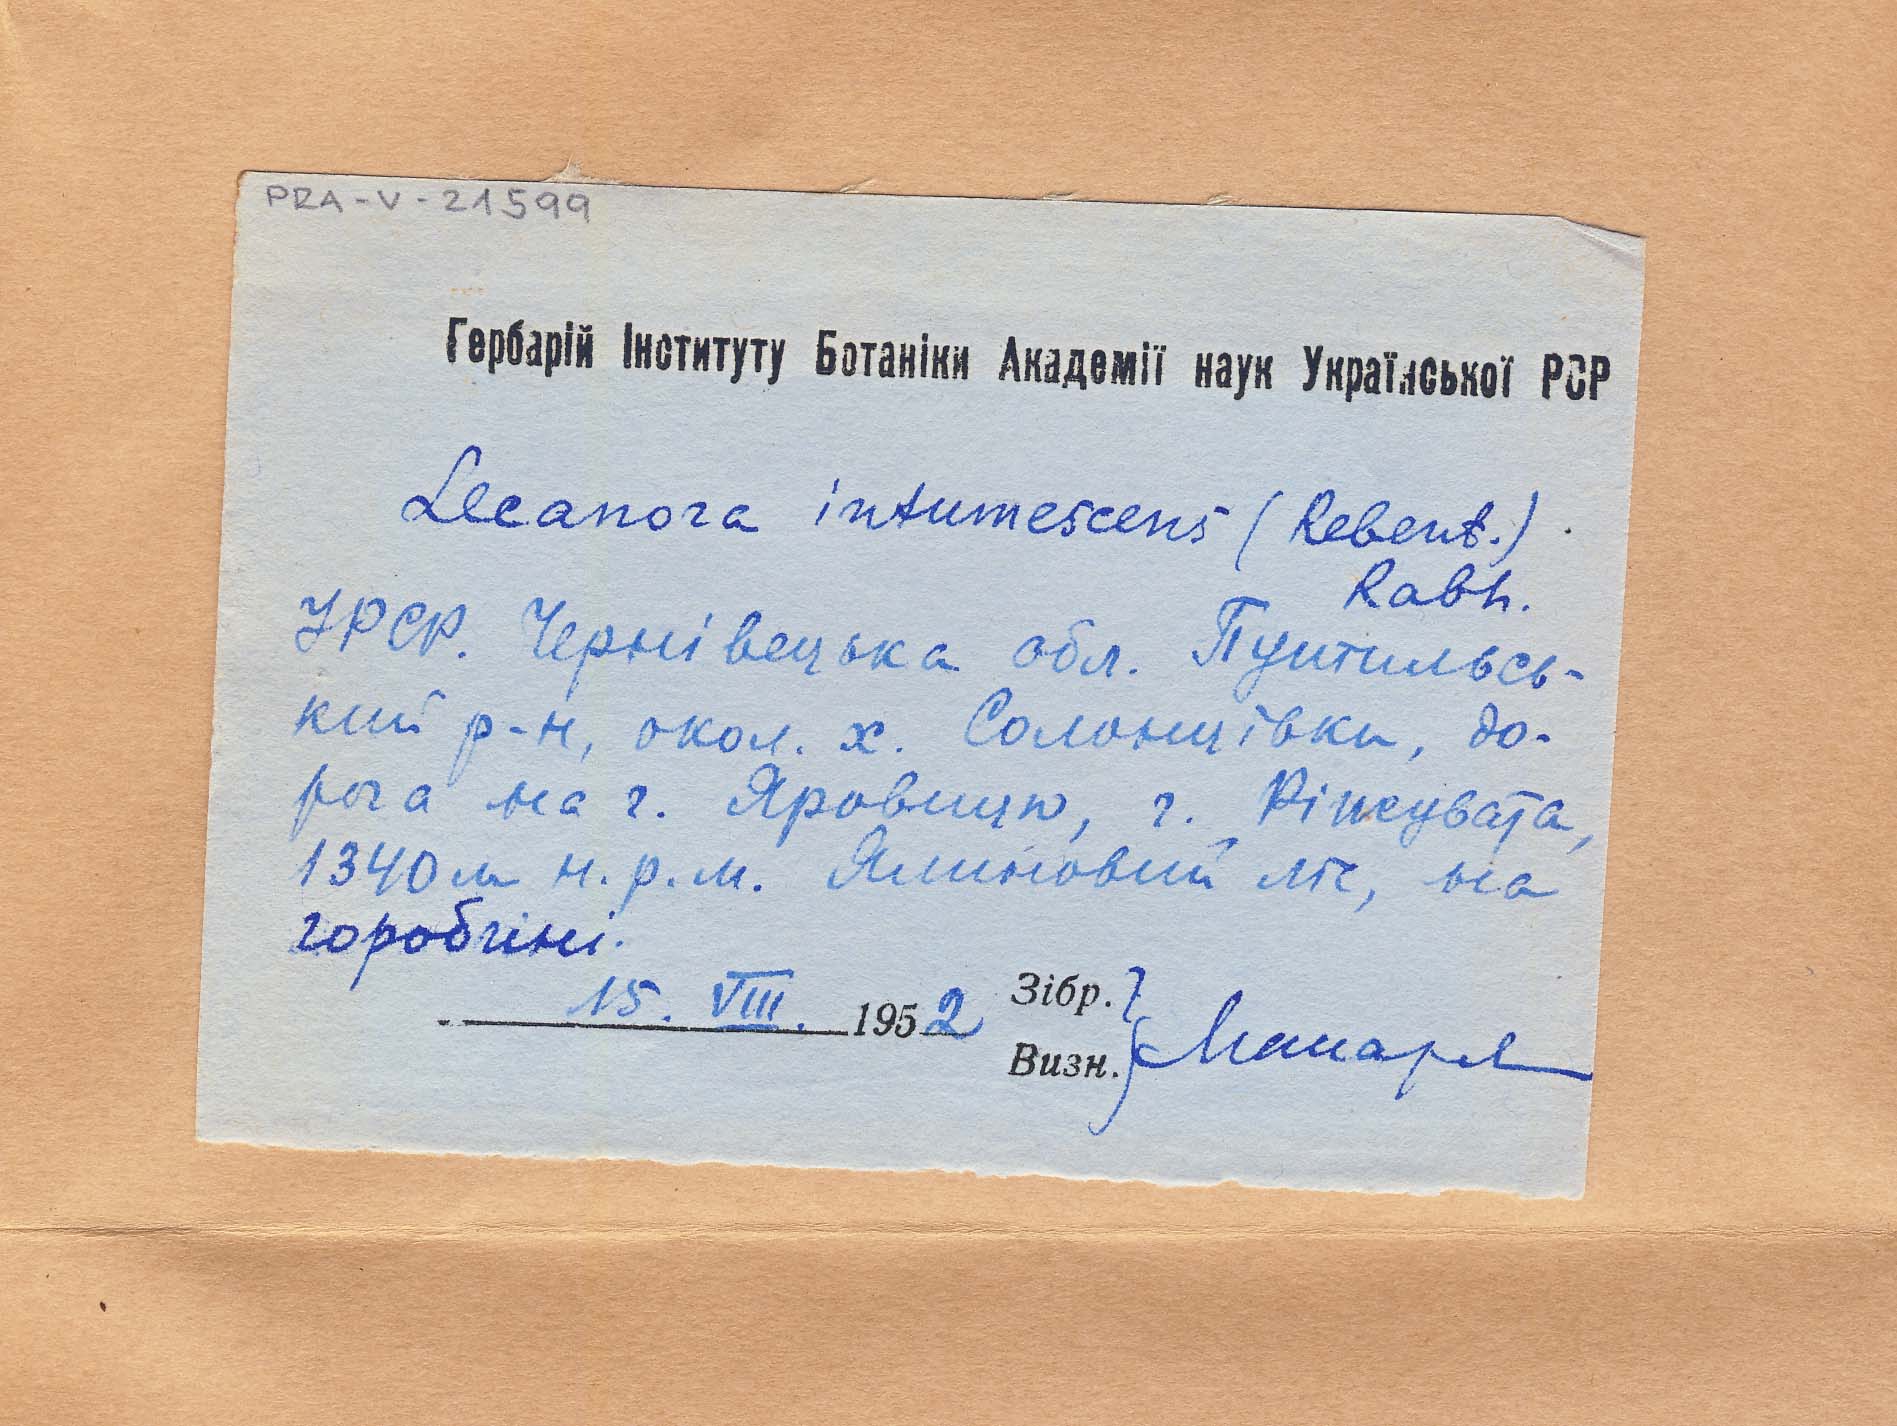 PRA-V-21599
Гербарій Інституту Ботаніки Академії наук Української РСР
Lecanora intumescens (Rebent.)
Rabh.
УРСР. Чернівецька обл. Путильсь-
кий р-н, окол. х. Солонцівки, до-
рога на г. Яровицю, г.
1340 м н.р.м. Ялиновий ліс, на
горобчині.
15. VIII. 1952 Зібр.
Визн. Макаре